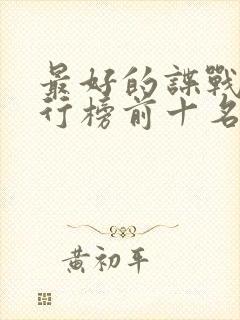 最好的諜戰
行榜前十名
黃初平